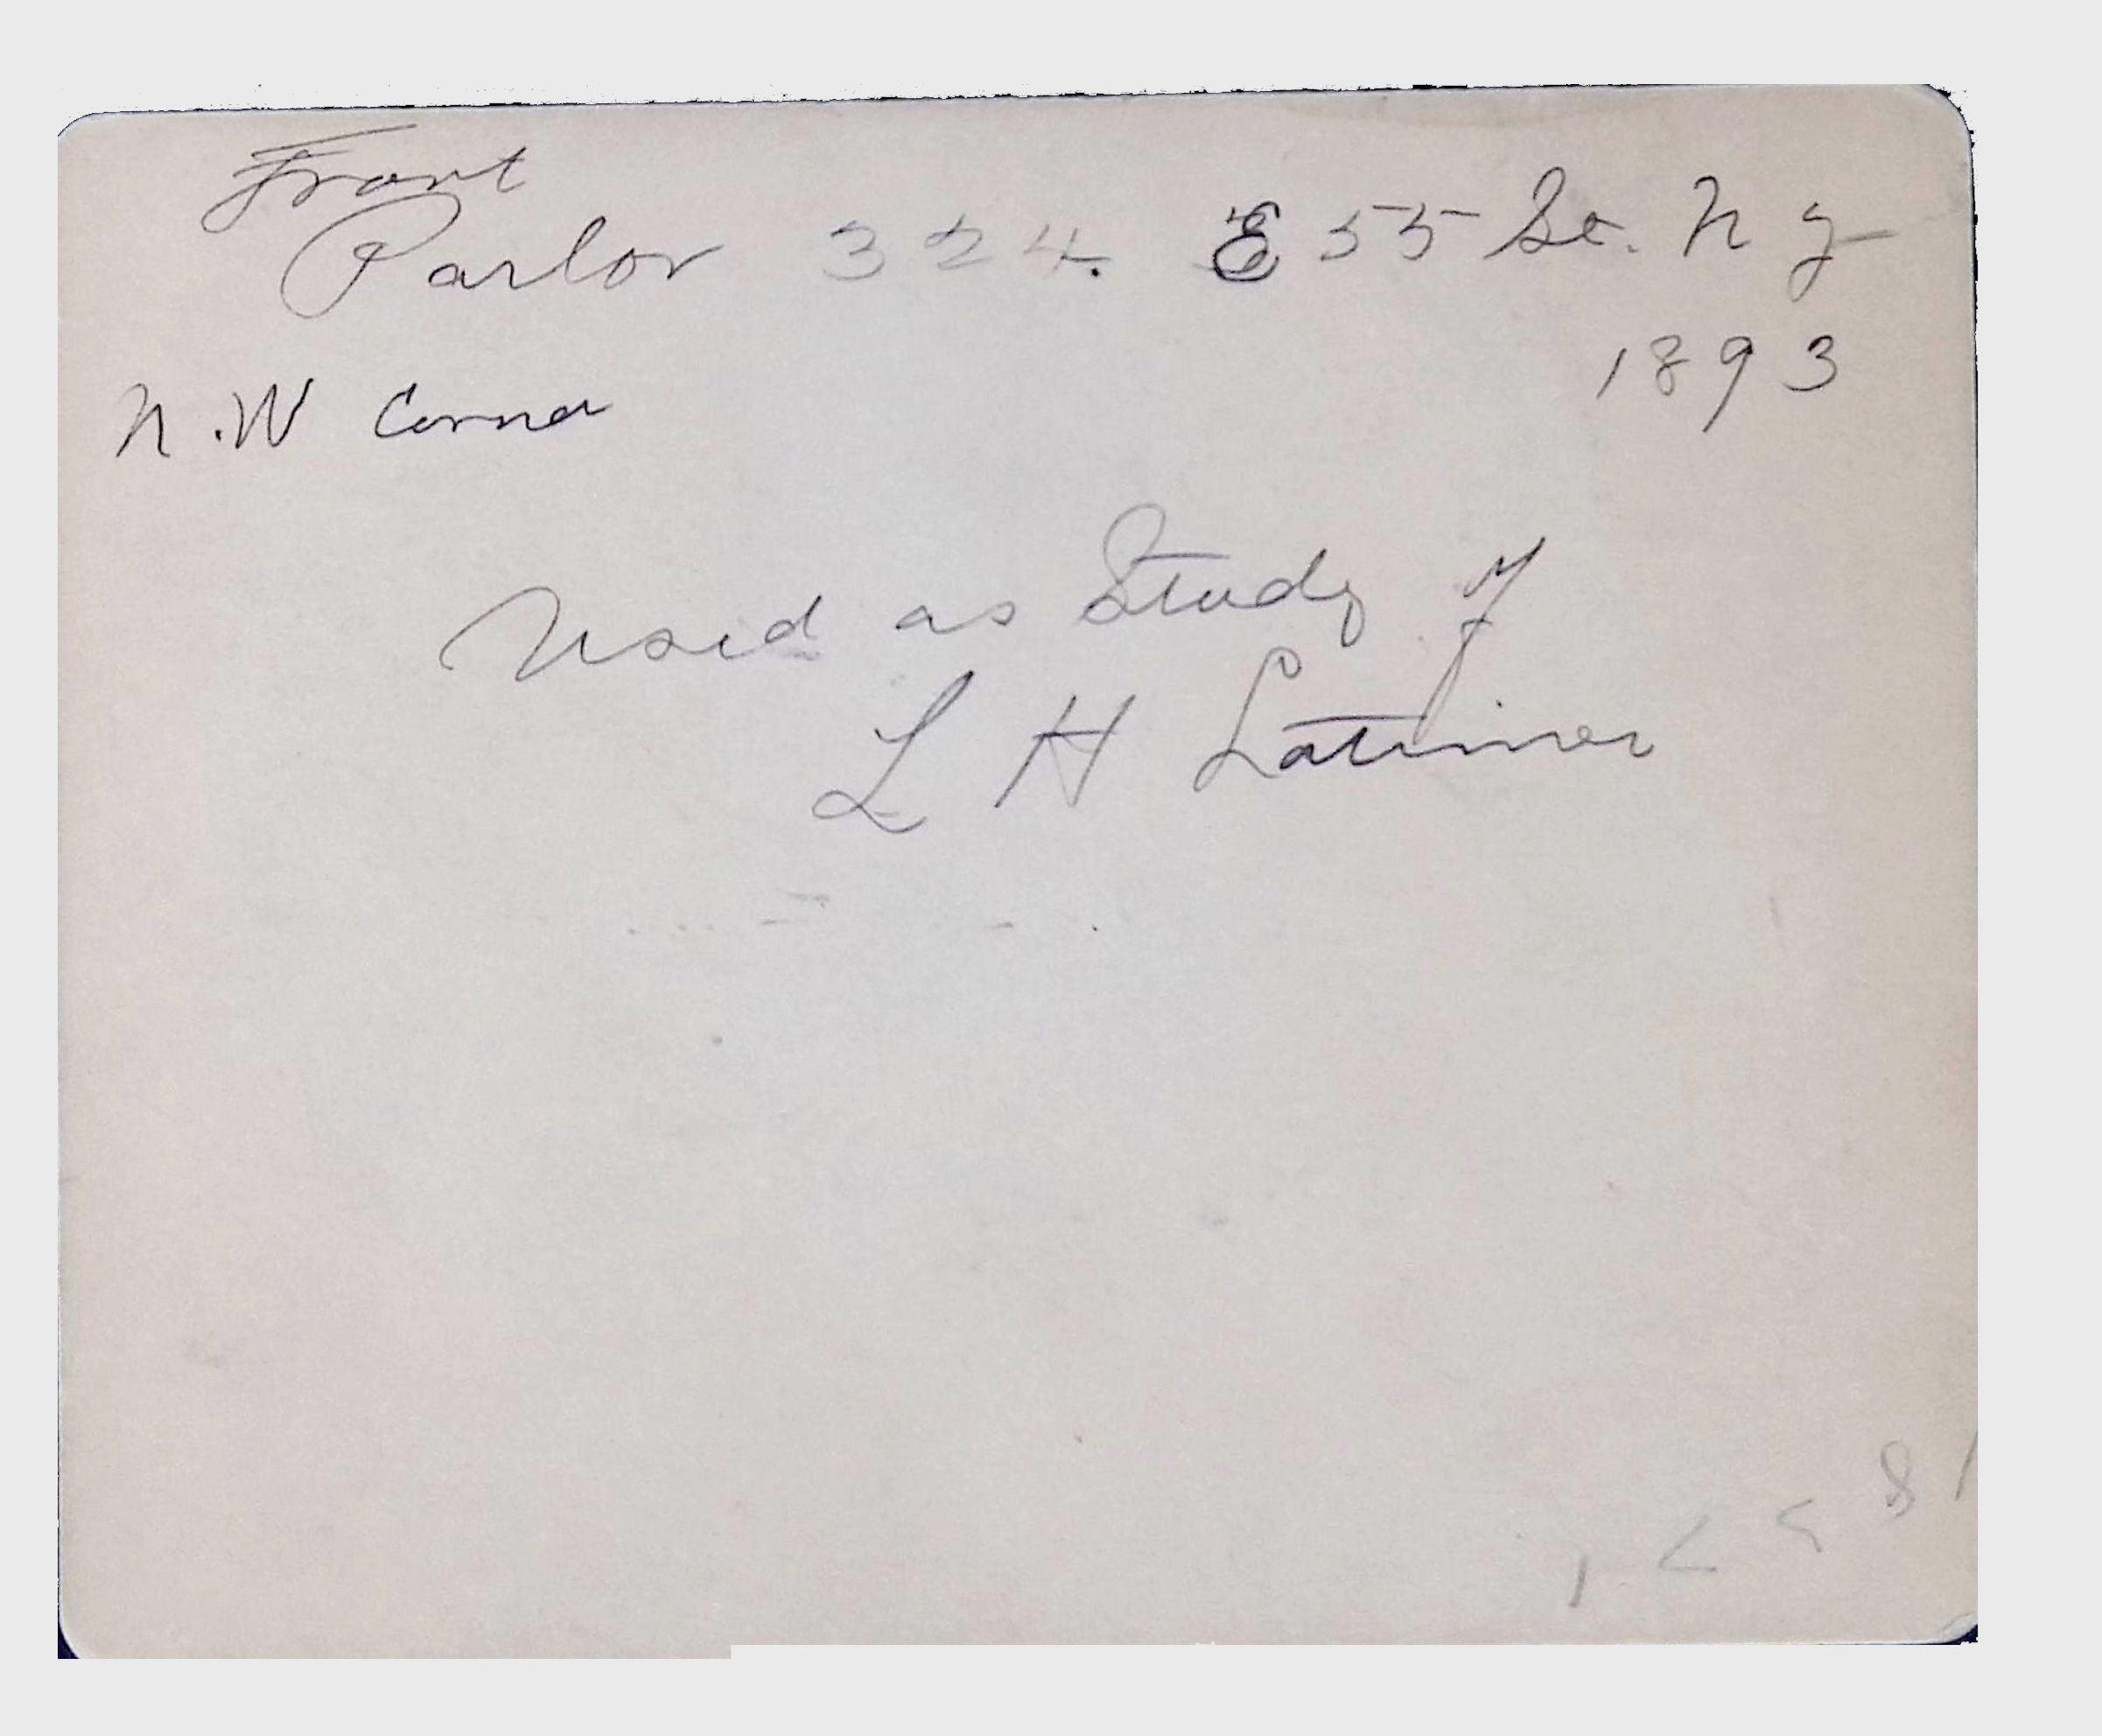 Front
Parlor 324. E 55 St. N Y
1893
N.W Corner
Used as Study of
L H Latimer